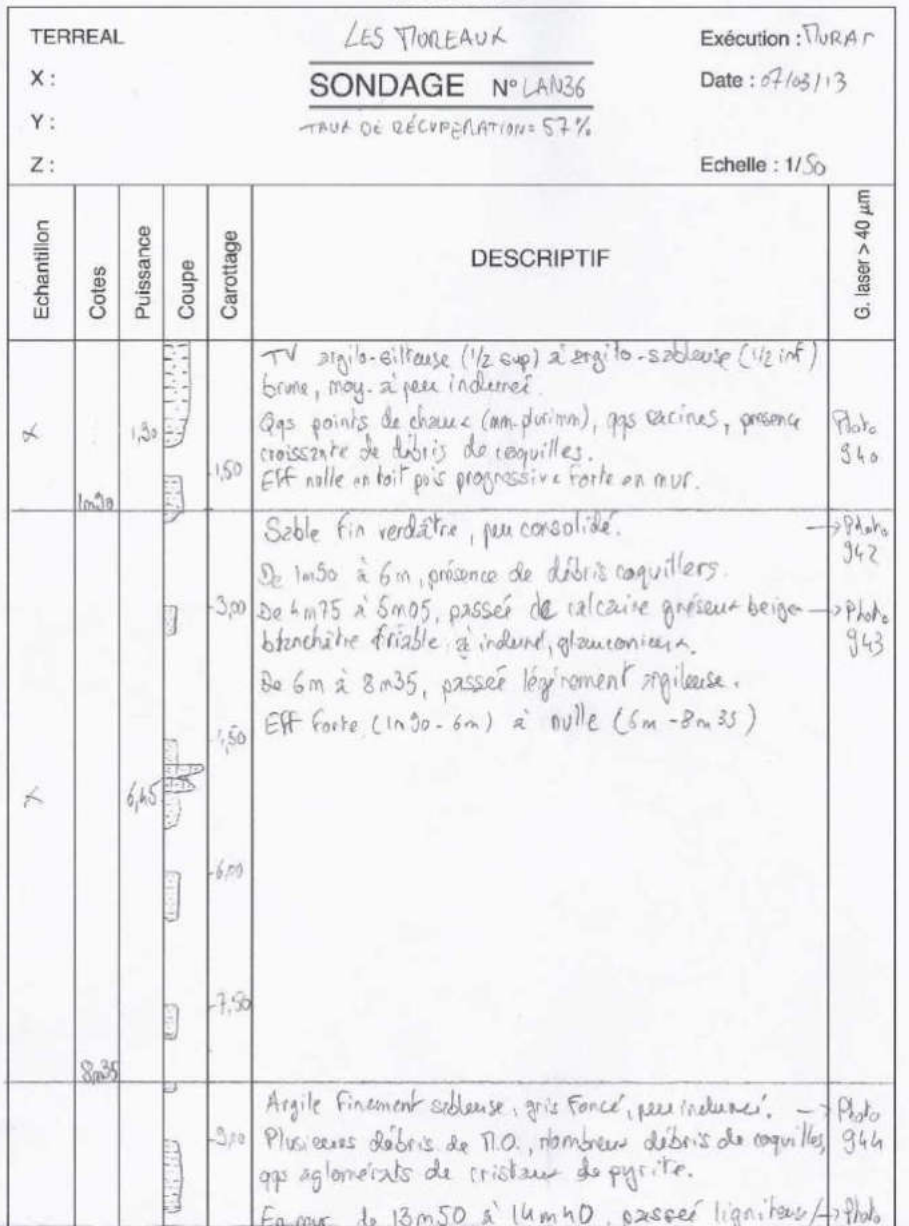 TERREAL
LES MUREAUX
Exécution : MURAT
X :
SONDAGE N° LAN36
Date : 07/03/13
Y :
TAUX DE RÉCUPÉRATION = 57%
Z :
Echelle : 1/50
Echantillon
Cotes
Puissance
Coupe
Carottage
DESCRIPTIF
G. laser > 40 µm
TV argilo-silteuse (1/2 sup) à argilo-sableuse (1/2 inf)
brune, moy. à peu induré.
Qqs points de chaux (mm-plurimm), qqs racines, présence
croissante de débris de coquilles.
Eff nulle en toit puis progressive forte en mur.
X
1,90
1,50
1m90
Photo
940
Sable fin verdâtre, peu consolidé.
→ Photo
942
De 1m90 à 6m, présence de débris coquillers.
3,00
De 4m75 à 5m05, passée de calcaire gréseux beige
→ Photo
943
blanchâtre friable à induré, glauconieux.
De 6m à 8m35, passée légèrement argileuse.
Eff forte (1m90-6m) à nulle (6m-8m35)
4,50
X
6,45
6,00
7,50
8m35
Argile finement sableuse, gris foncé, peu induré.
→ Photo
944
9,00
Plusieurs débris de M.O., nombreux débris de coquilles,
qqs aglomérats de cristaux de pyrite.
En mur de 13m50 à 14m40, passée ligniteux/
→ Photo